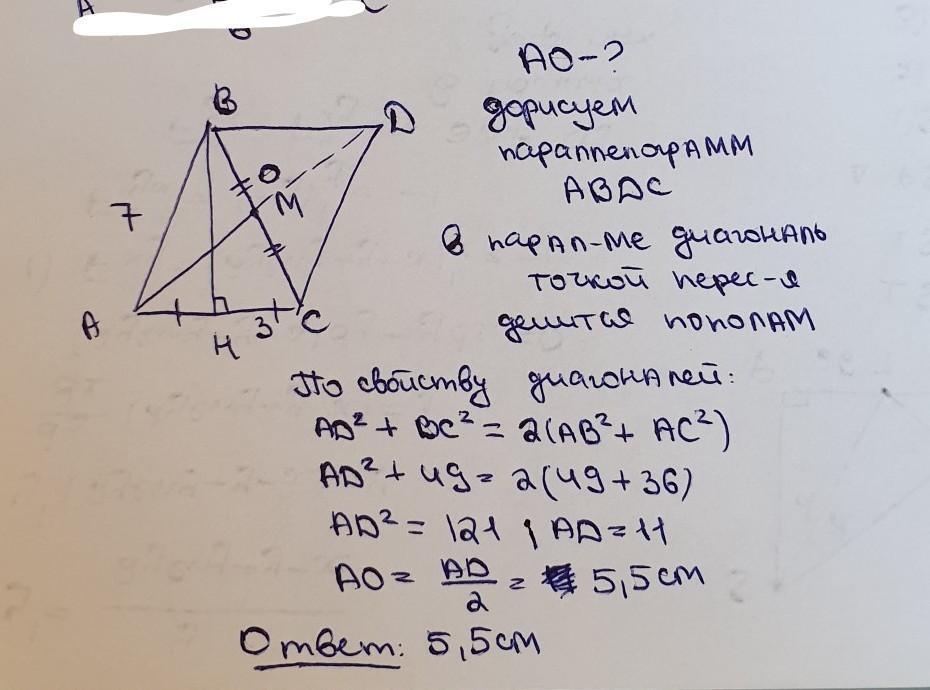 AO-?
B
D
дорисуем
параллелограмм
ABDC
O
M
7
в парал-ме диагональ
точкой перес-я
делится пополам
A
H
3
C
По свойству диагоналей:
AD² + BC² = 2(AB² + AC²)
AD² + 49 = 2(49 + 36)
AD² = 121 ; AD = 11
AO = AD/2 = 5,5 см
Ответ: 5,5 см